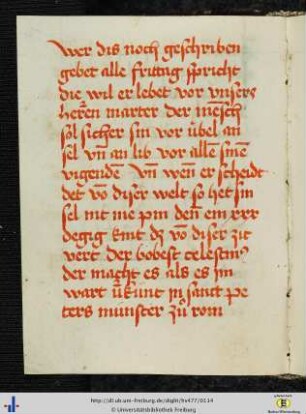 Wer dis noch geschriben
gebet alle frittag spricht
die wil er lebet vor unserꝰ
herrē marter der mēsch
sol sicher sin vor úbel an
sel vn̄ an lib vor allē sinē
vigenden Vn̄ wen er scheidt
det vō diser welt so het sin
sel nit me pin den ein xxx
degig kint dz vō diser zit
vert der bobest celestinꝰ
der macht es als es im
wart úkunt in sanct pe
ters munster zů rom
http://dl.ub.uni-freiburg.de/diglit/hs477/0114
© Universitätsbibliothek Freiburg